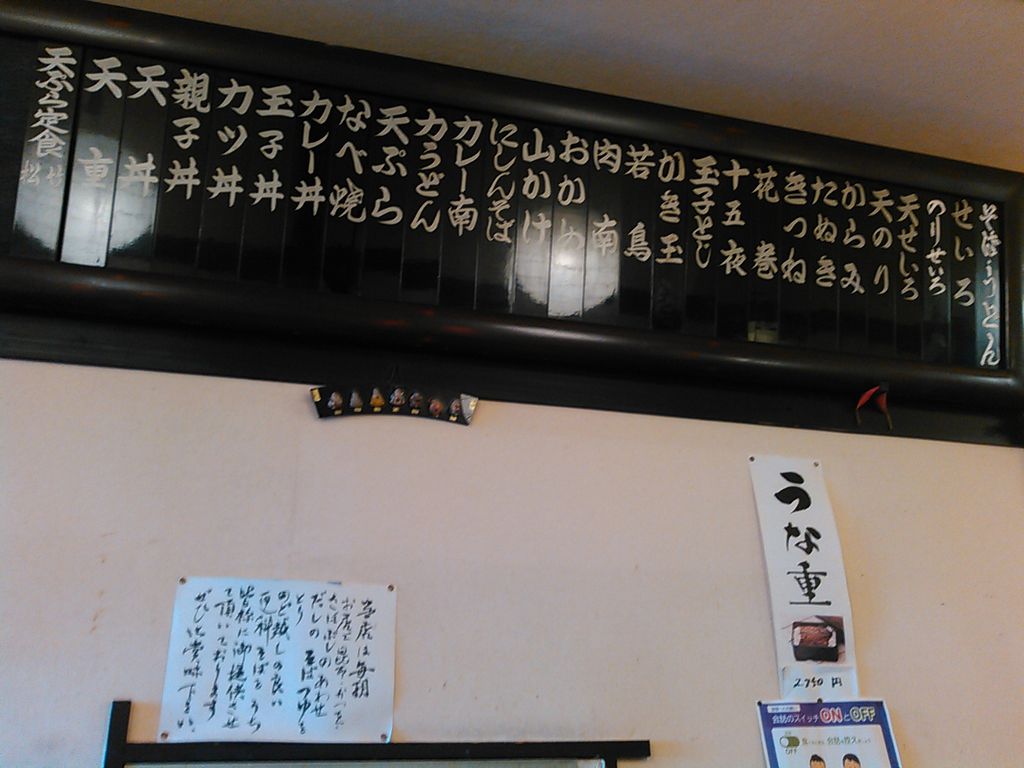 そば うどん
せいろ
のりせいろ
天せいろ
天のり
からみ
たぬき
きつね
花巻
十五夜
玉子とじ
かき玉
若鳥
肉南
おかめ
山かけ
にしんそば
カレー南
力うどん
天ぷら
なべ焼
カレー丼
玉子丼
カツ丼
親子丼
天丼
天重
天ぷら定食 松 竹
うな重
2,750円
会話のスイッチ ONとOFF
OFF
当店は毎朝
お店で昆布・かつを
さばぶしのあわせ
だしの そばつゆを
とり
のど越しの良い
更科そばをうち
皆様に御提供させ
て頂いております
ぜひ御賞味下さい